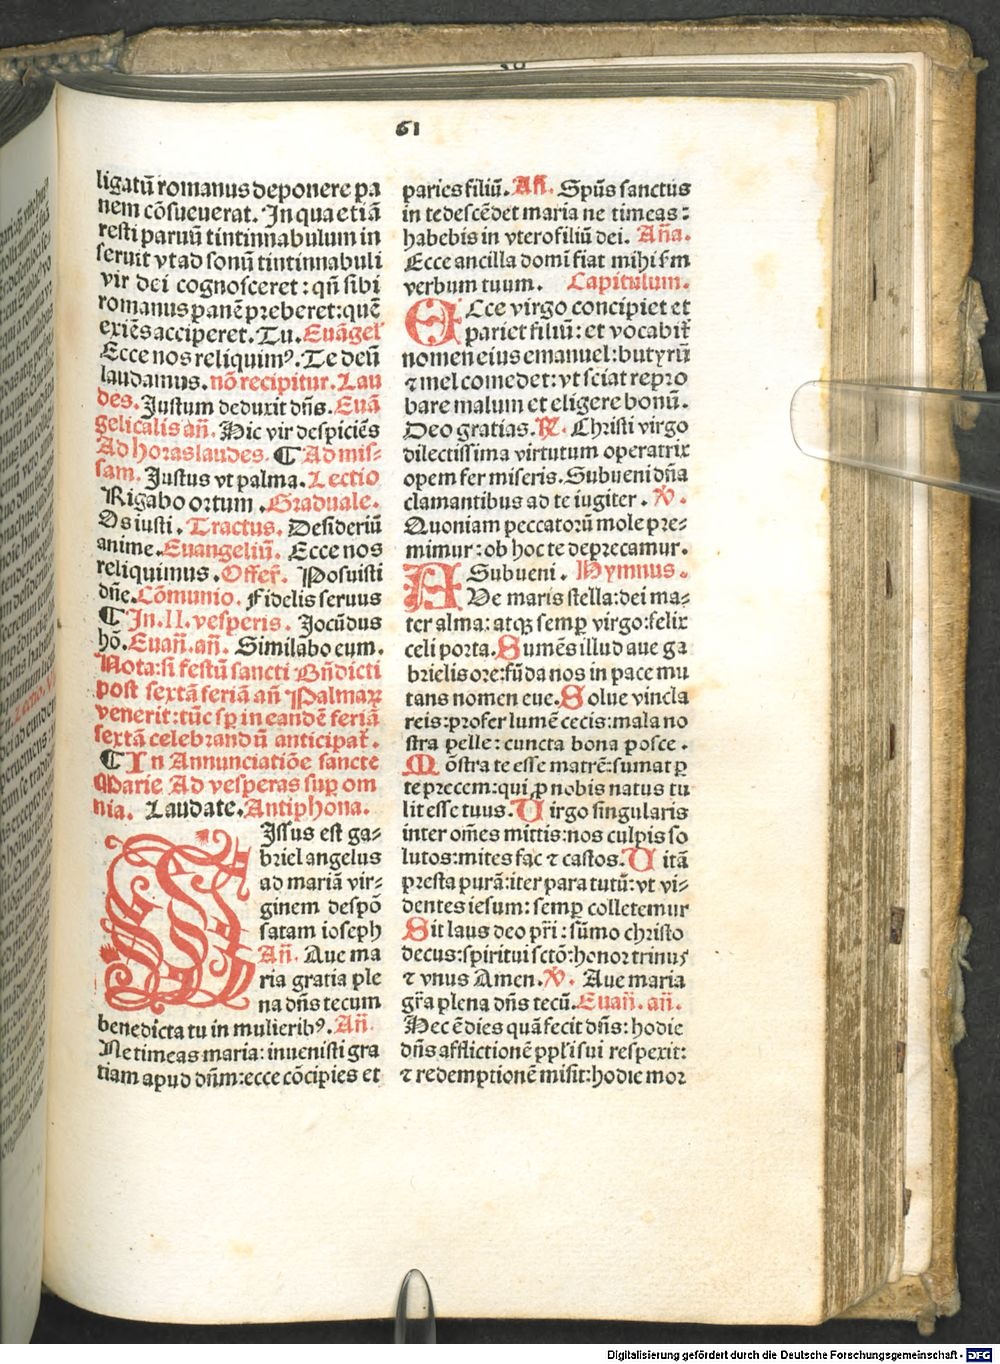 61
ligatū romanus deponere pa
nem cōsueuerat. In qua etiā
resti paruū tintinnabulum in
seruit vt ad sonū tintinnabuli
vir dei cognosceret : qn̄ sibi
romanus panē preberet: quē
exiēs acciperet. Tu. Euāgel̄
Ecce nos reliquimꝰ. Te deū
laudamus. nō recipitur. Lau
des. Justum deduxit dn̄s. Euā
gelicalis an̄. Hic vir despiciēs
Ad horas laudes. ¶ Ad mis⸗
sam. Justus vt palma. Lectio
Rigabo ortum. Graduale.
Os iusti. Tractus. Desideriū
anime. Euangeliū. Ecce nos
reliquimus. Offer̄. Posuisti
dn̄e. Cōmunio. Fidelis seruus
¶ In .II. vesperis. Jocūdus
hō. Euan̄. an̄. Similabo eum.
Nota: si festū sancti Bn̄dicti
post sextā feriā an̄ Palmaꝝ
venerit: tūc sꝑ in eandē feriā
sextā celebrandū anticipat̄.
¶ In Annunciatiōe sancte
Marie Ad vesperas suꝑ om
nia. Laudate. Antiphona.
MIssus est ga⸗
briel angelus
ad mariā vir⸗
ginem despō
satam ioseph
An̄. Aue ma
ria gratia ple
na dn̄s tecum
benedicta tu in mulieribꝰ. An̄.
Ne timeas maria: inuenisti gra
tiam apud dn̄m: ecce cōcipies et
paries filiū. An̄. Spūs sanctus
in te descēdet maria ne timeas:
habebis in vtero filiū dei. An̄a.
Ecce ancilla domī fiat mihi
verbum tuum. Capitulum.
ECce virgo concipiet et
pariet filiū: et vocabit̄
nomen eius emanuel: butyrū
⁊ mel comedet: vt sciat repro
bare malum et eligere bonū.
Deo gratias. ℟. Christi virgo
dilectissima virtutum operatrix
opem fer miseris. Subueni dn̄a
clamantibus ad te iugiter. ℣.
Quoniam peccatorū mole pre⸗
mimur: ob hoc te deprecamur.
Subueni. Hymnus.
AUe maris stella: dei ma⸗
ter alma: atqꝫ semꝑ virgo: felix
celi porta. Sumēs illud aue ga
brielis ore: fūda nos in pace mu
tans nomen eue. Solue vincla
reis: profer lumē cecis: mala no
stra pelle: cuncta bona posce.
Mōstra te esse matrē: sumat ꝑ
te precem: qui ꝓ nobis natus tu
lit esse tuus. Virgo singularis
inter om̄es mittis: nos culpis so
lutos: mites fac ⁊ castos. Vitā
presta purā: iter para tutū: vt vi⸗
dentes iesum: semꝑ colletemur
Sit laus deo pr̄i: sūmo christo
decus: spiritui sctō: honor trinus
⁊ vnus Amen. ℣. Aue maria
gr̄a plena dn̄s tecū. Euan̄. an̄.
Hec ē dies quā fecit dn̄s: hodie
dn̄s afflictionē ppl̄i sui respexit:
⁊ redemptionē misit: hodie mor
Digitalisierung gefördert durch die Deutsche Forschungsgemeinschaft - DFG